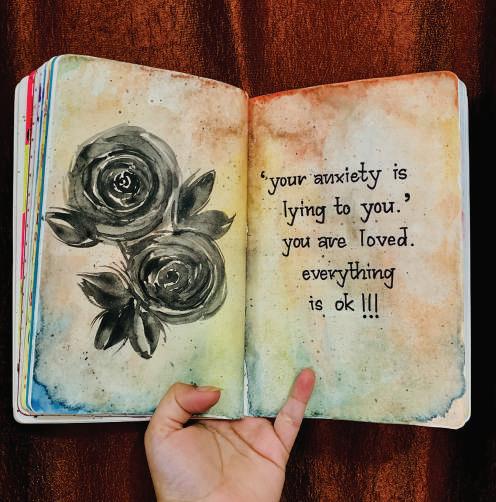 'your anxiety is
lying to you.'
you are loved.
everything
is ok !!!